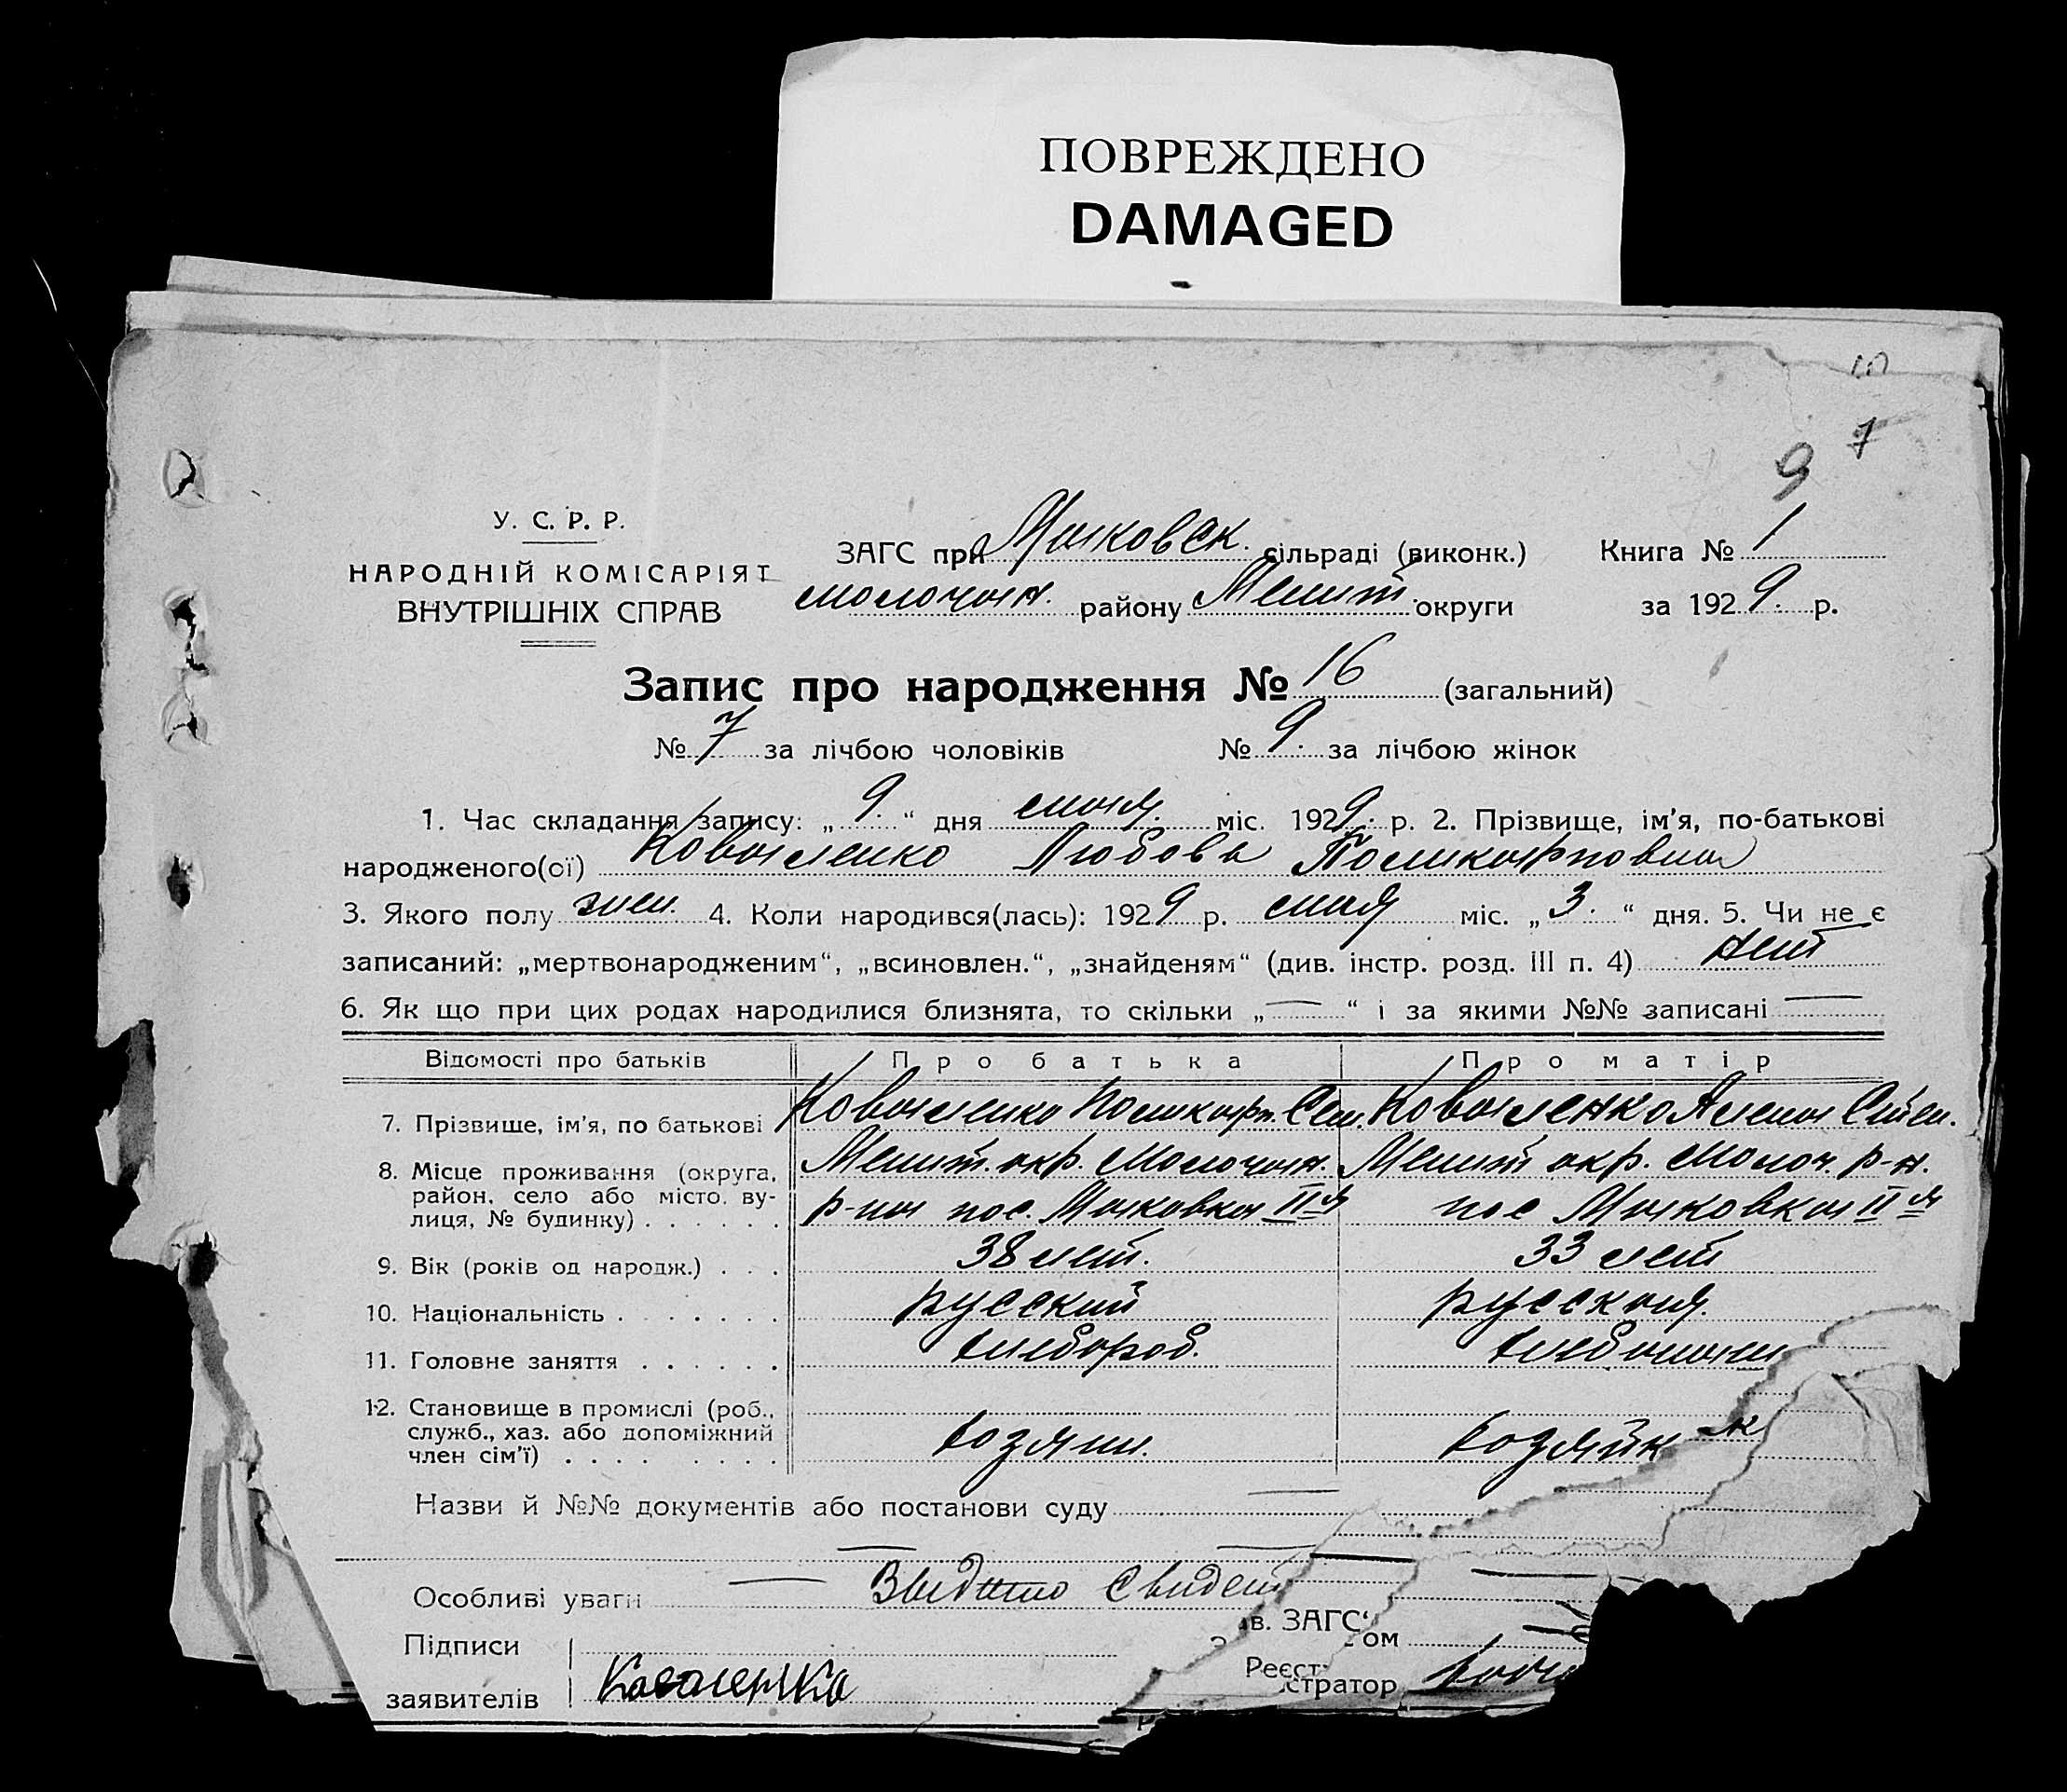 ПОВРЕЖДЕНО
DAMAGED
10
7
9
У. С. Р. Р.
НАРОДНІЙ КОМІСАРІЯТ
ВНУТРІШНІХ СПРАВ
ЗАГС при Маковск. сільраді (виконк.) Книга № 1
молочан. району Мелит. округи за 1929. р.
Запис про народження № 16 (загальний)
№ 7 за лічбою чоловіків № 9. за лічбою жінок
1. Час складання запису: „9.“ дня мая. міс. 1929. р. 2. Прізвище, ім'я, по-батькові
народженого(ої) Коваленко Любовь Поликарповна
3. Якого полу жен. 4. Коли народився(лась): 1929 р. мая міс. „3.“ дня. 5. Чи не є
записаний: „мертвонародженим“, „всиновлен.“, „знайденям“ (див. інстр. розд. III п. 4) нет
6. Як що при цих родах народилися близнята, то скільки „—“ і за якими №№ записані —
Відомості про батьків Про батька Про матір
7. Прізвише, ім'я, по батькові Коваленко Поликарп. Сем. Коваленко Алена Степ.
8. Місце проживання (округа, район, село або місто, вулиця, № будинку) Мелит. окр. Молочан. Мелит окр. Молоч. р-н.
р-на пос. Маковка II я пос Маковка II я
9. Вік (років од народж.) . . . 38 лет. 33 лет
10. Національність . . . . . . . русский русская.
11. Головне заняття . . . . . . хлебороб.
12. Становище в промислі (роб., служб., хаз. або допоміжний член сім'ї) . . . . . . . . хозяин. хозяйк
Назви й №№ документів або постанови суду —
Особливі уваги — Выдано Свидет
Підписи
заявителів Коваленко
ав. ЗАГС'ом
Реєстратор